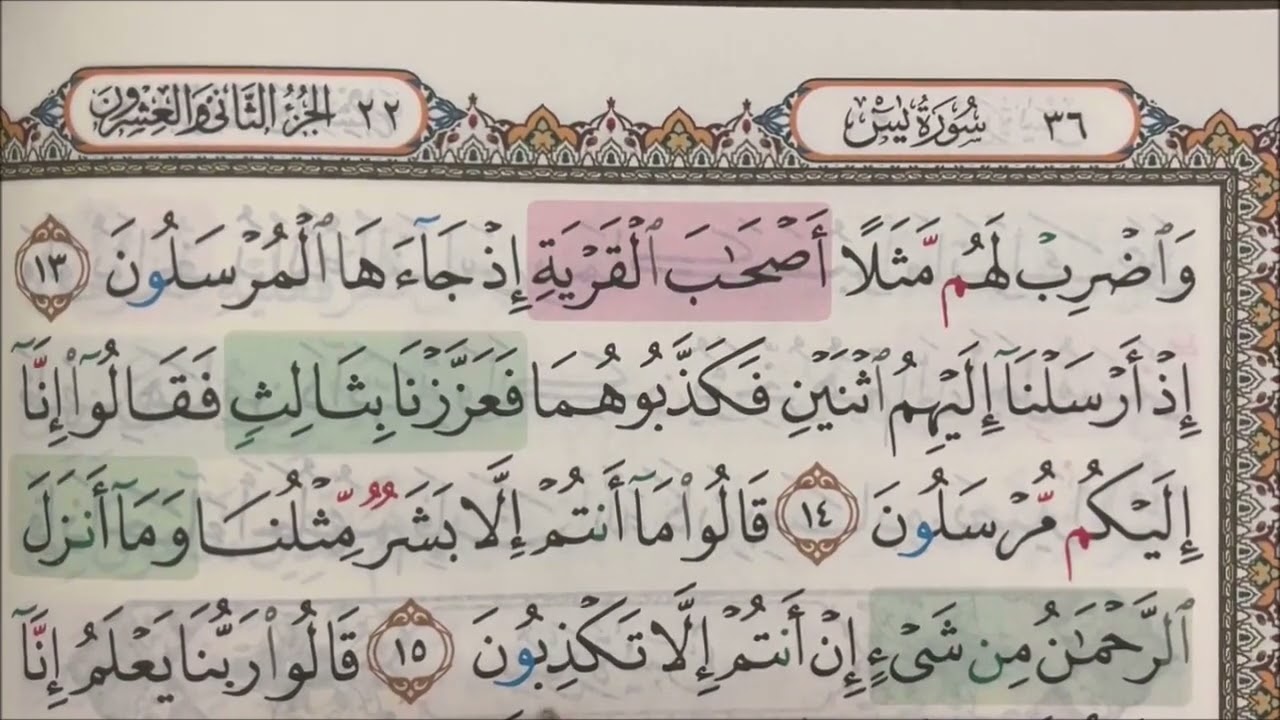 ٣٦ سُورَةُ يسٓ
الجُزْءُ الثَّانِي وَالعِشْرُونَ ٢٢
وَٱضْرِبْ لَهُم مَّثَلًا أَصْحَٰبَ ٱلْقَرْيَةِ إِذْ جَآءَهَا ٱلْمُرْسَلُونَ ١٣
إِذْ أَرْسَلْنَآ إِلَيْهِمُ ٱثْنَيْنِ فَكَذَّبُوهُمَا فَعَزَّزْنَا بِثَالِثٍ فَقَالُوٓا۟ إِنَّآ
إِلَيْكُم مُّرْسَلُونَ ١٤ قَالُوا۟ مَآ أَنتُمْ إِلَّا بَشَرٌ مِّثْلُنَا وَمَآ أَنزَلَ
ٱلرَّحْمَٰنُ مِن شَىْءٍ إِنْ أَنتُمْ إِلَّا تَكْذِبُونَ ١٥ قَالُوا۟ رَبُّنَا يَعْلَمُ إِنَّآ